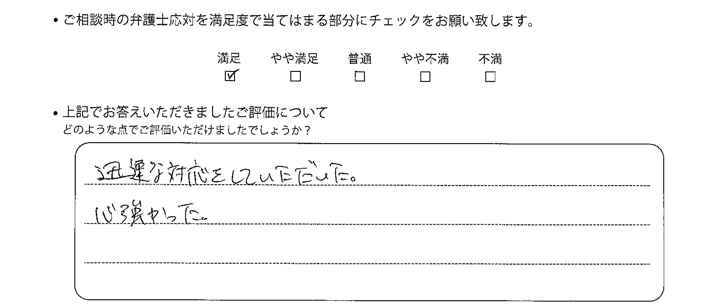 • ご相談時の弁護士応対を満足度で当てはまる部分にチェックをお願い致します。
満足 やや満足 普通 やや不満 不満
☑ □ □ □ □
• 上記でお答えいただきましたご評価について
どのような点でご評価いただけましたでしょうか？
迅速な対応をしていただいた。
心強かった。